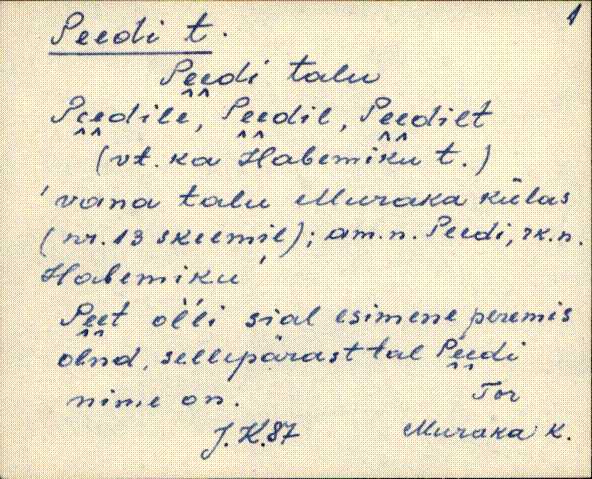 1
Peedi t.
Peedi talu
Peedile, Peedil, Peedilt
(vt. ka Habemiku t.)
'vana talu Muraka külas
(nr. 13 skeemil); am.n. Peedi, rk.n.
Habemiku'
Peet olli sial esimene peremis
olnd, sellepärast tal Peedi
nime on.
Tor
J.K.87 Muraka k.